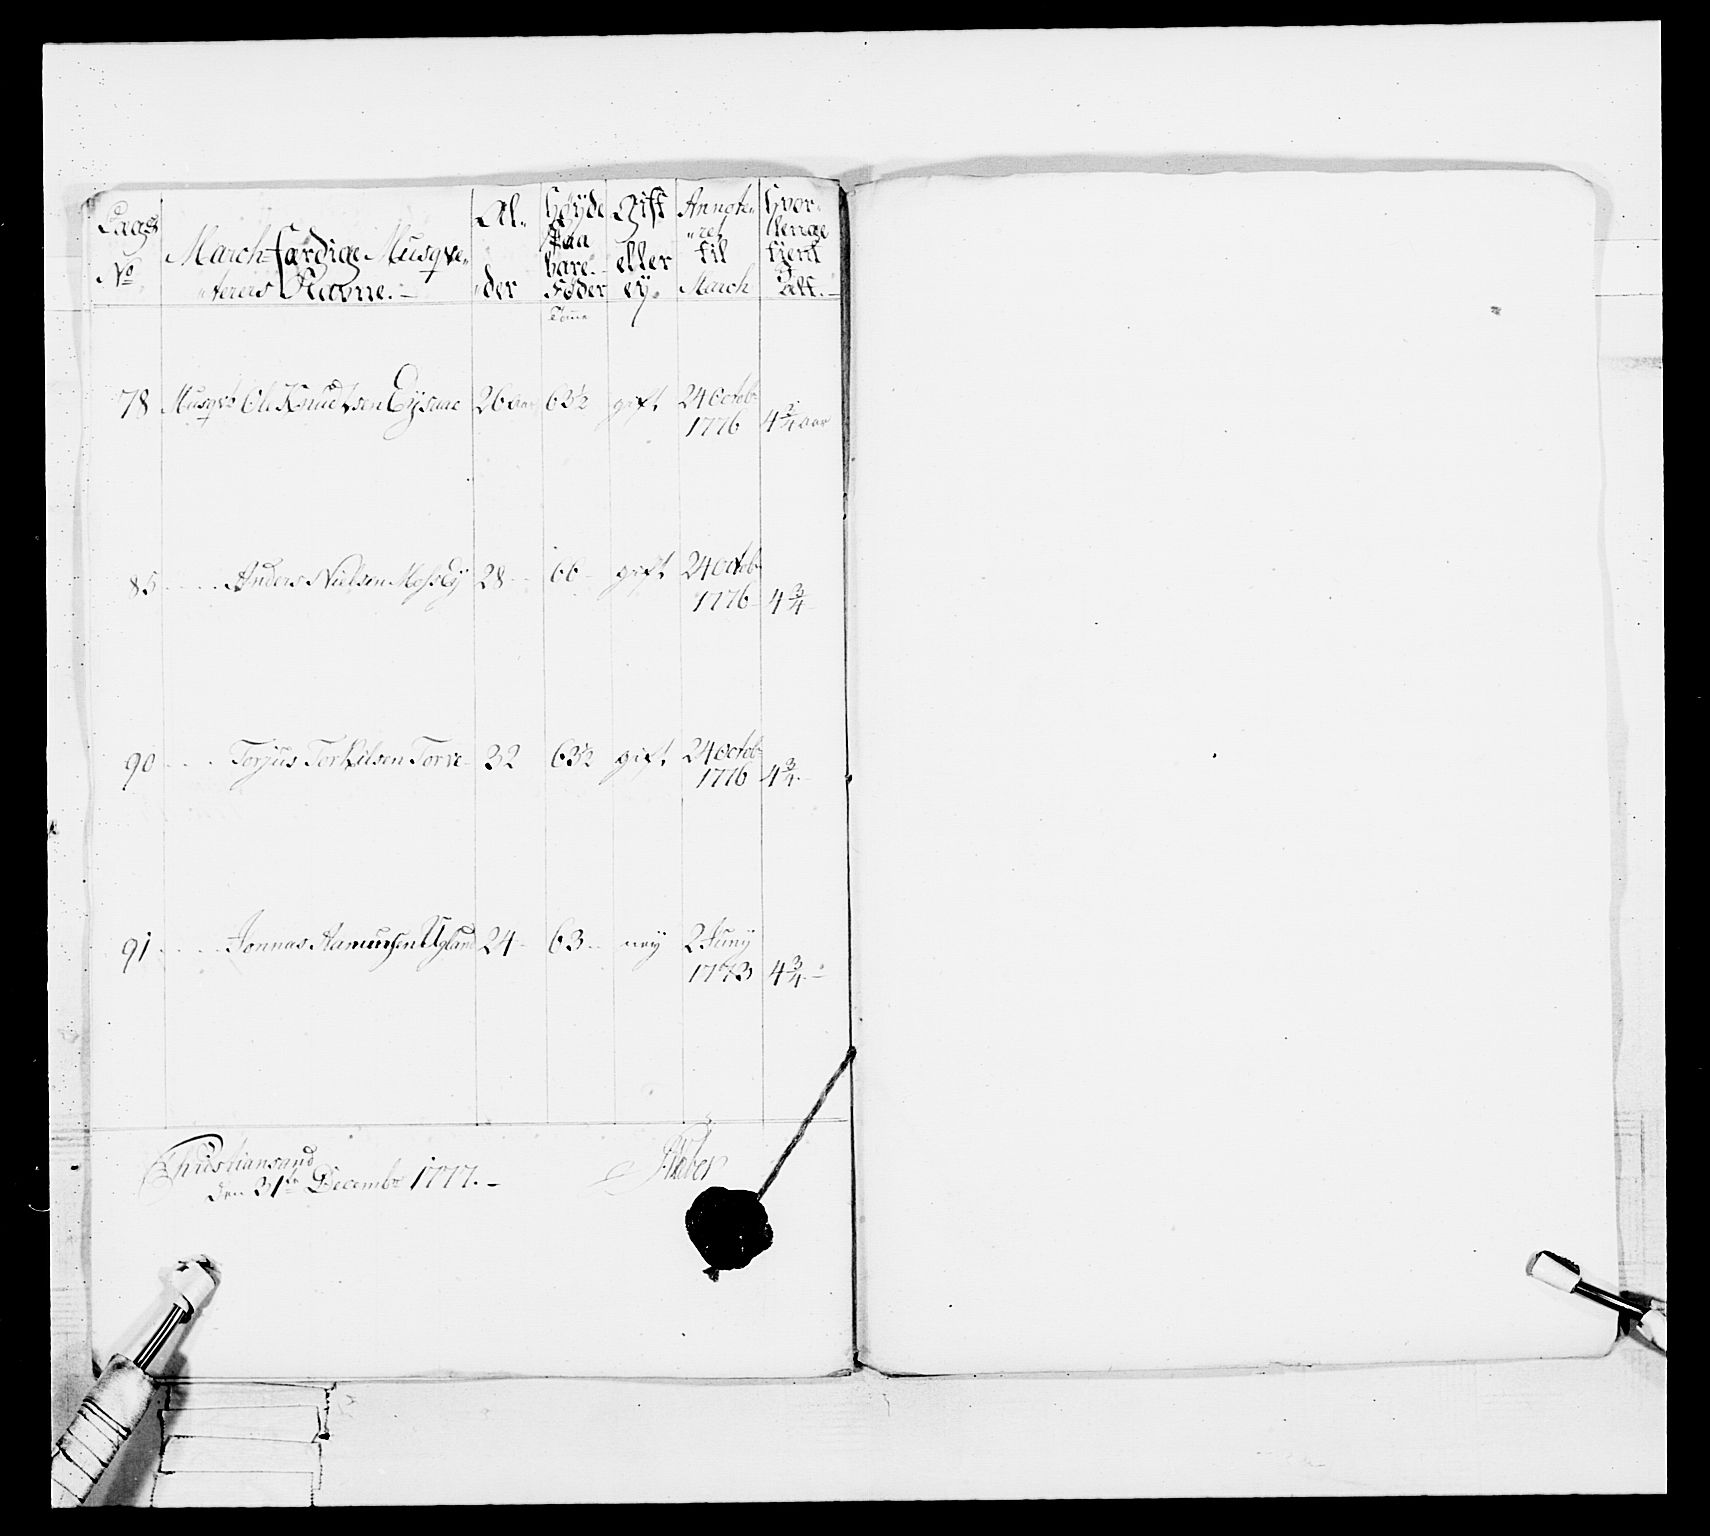 Laags No
March-færdige Musqve-
terers Navne.
Al-
der
Høyde
paa
bare
Føder
Gift
eller
ey.
Annote-
ret
til
March
Hvor-
lenge
tient
Tomme
78 Musqvr Ole Knudtsen 26 aar 63½ gift 24 Octob: 1776 4¾ aar
85 Anders Nielsen 28 66 gift 24 Octob: 1776 4¾
90 Torjus Torkilsen Torve 32 63½ gift 24 Octob: 1776 4¾
91 Jonnas Aamundsen Ugland 24 63 ney 2 Juny 1773 4¾
Christiansand
den 31te Decembr 1777.